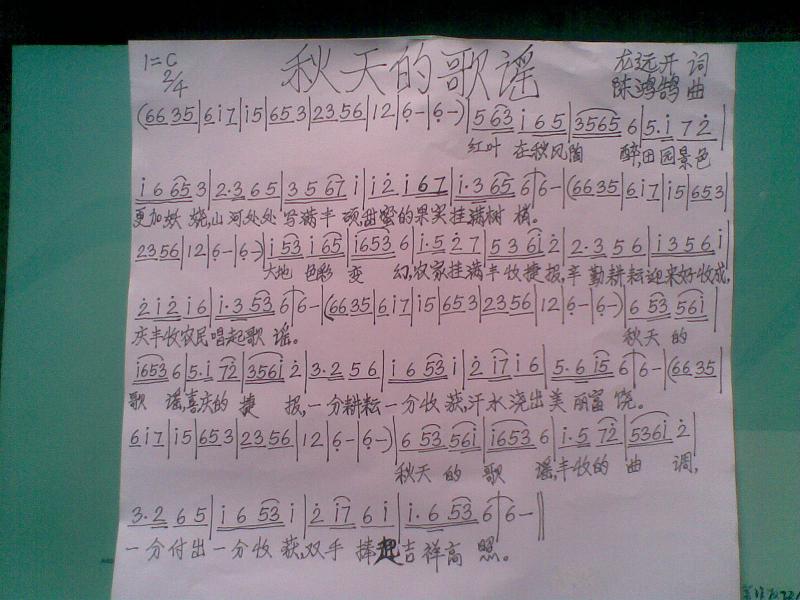 1=C 秋天的歌谣 龙远开 词
2/4 陈鸿鹄 曲
(66 35|6 i7|i5|65 3|23 56|12|6̣-|6̣-)|5 63 i 6 5|3565 6|5. i 7 2̇|
红叶 在秋风陶 醉,田园景色
i 6 65 3|2·3 6 5|3 5 67 i|i 2̇. i 67|i·3 65 6|6-|(66 35|6 i7|i5|65 3|
更加妖娆,山河处处写满丰硕,甜蜜的果实挂满树梢。
23 56|12|6̣-|6̣-)|i 53 i 65|i653 6|i·5 2̇ 7|5 3 6i 2̇|2·3 5 6|i 3 5 6 i|
大地 色彩 变 幻,农家挂满丰收捷报,辛勤耕耘迎来好收成,
2̇ i 2̇ i 6|i·3 53 6|6-|(66 35|6 i7|i5|65 3|23 56|12|6̣-|6̣-)|6 53 56i|
庆丰收农民唱起歌 谣。 秋天 的
i653 6|5. i 7 2̇|356i 2̇|3·2 5 6|i 6 53 i|2̇ i7 i 6|5·6 i5 6|6-|(66 35|
歌 谣,喜庆的 捷 报,一分耕耘一分收获,汗水浇出美丽富饶。
6 i7|i5|65 3|23 56|12|6̣-|6̣-)|6 53 56i|i653 6|i·5 7 2̇|536i 2̇|
秋天 的 歌 谣,丰收的 曲 调,
3·2 6 5|i 6 53 i|2̇ i7 6 i|i·6 53 6|6-‖
一分付出一分收获,双手 捧起吉祥高 照。